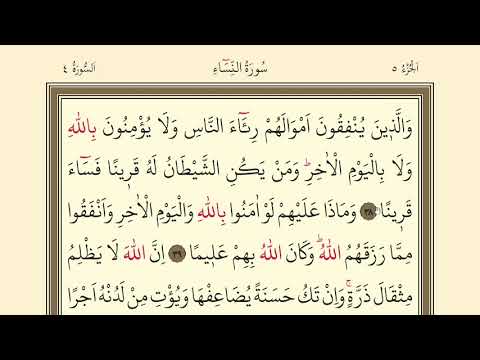 اَلْجُزْءُ ٥
سُورَةُ النِّسَٓاءِ
اَلسُّورَةُ ٤
وَالَّذ۪ينَ يُنْفِقُونَ اَمْوَالَهُمْ رِئَٓاءَ النَّاسِ وَلَا يُؤْمِنُونَ بِاللّٰهِ
وَلَا بِالْيَوْمِ الْاٰخِرِۜ وَمَنْ يَكُنِ الشَّيْطَانُ لَهُ قَر۪ينًا فَسَٓاءَ
قَر۪ينًا ﴿٣٨﴾ وَمَاذَا عَلَيْهِمْ لَوْ اٰمَنُوا بِاللّٰهِ وَالْيَوْمِ الْاٰخِرِ وَاَنْفَقُوا
مِمَّا رَزَقَهُمُ اللّٰهُۜ وَكَانَ اللّٰهُ بِهِمْ عَل۪يمًا ﴿٣٩﴾ اِنَّ اللّٰهَ لَا يَظْلِمُ
مِثْقَالَ ذَرَّةٍۚ وَاِنْ تَكُ حَسَنَةً يُضَاعِفْهَا وَيُؤْتِ مِنْ لَدُنْهُ اَجْرًا